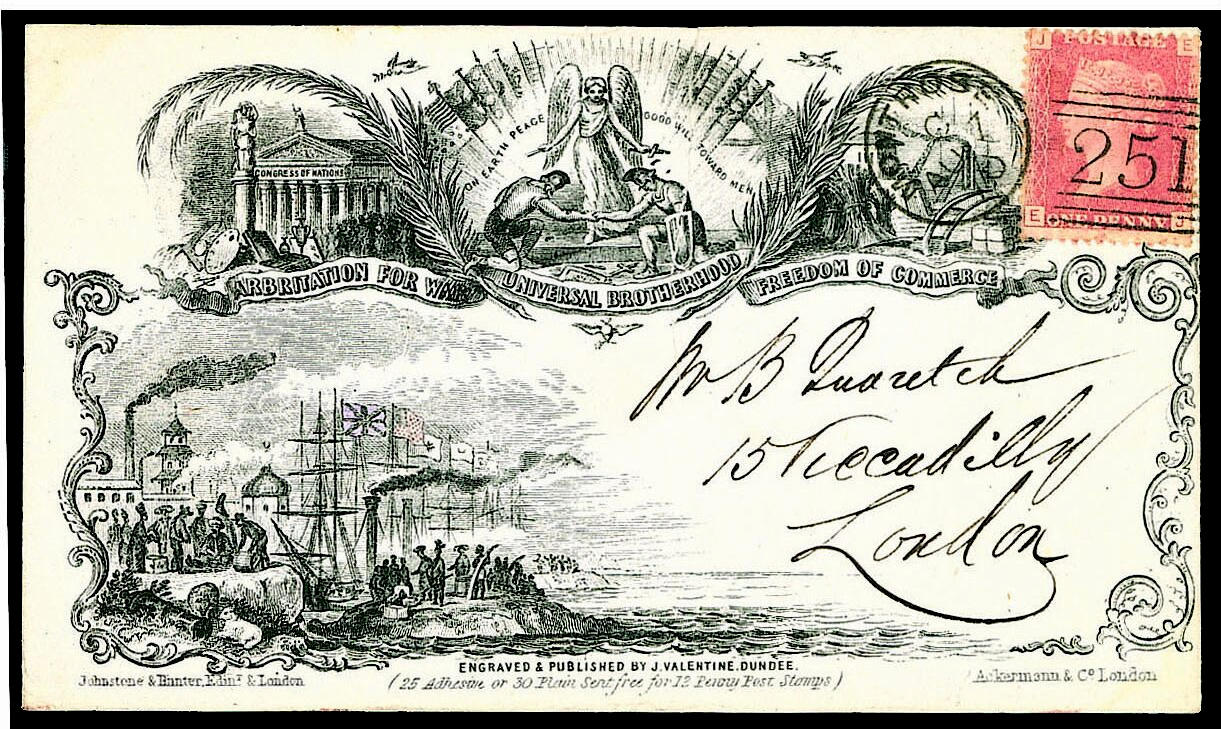 J POSTAGE E
251
E ONE PENNY J
ON EARTH PEACE GOOD WILL TOWARD MEN
CONGRESS OF NATIONS
ARBRITATION FOR WAR
UNIVERSAL BROTHERHOOD
FREEDOM OF COMMERCE
Mr B Quaretch
15 Piccadilly
London
ENGRAVED & PUBLISHED BY J. VALENTINE, DUNDEE.
Johnstone & Hunter, Edinr & London
(25 Adhesive or 30 Plain Sent free for 12 Penny Post Stamps)
Ackermann & Co London